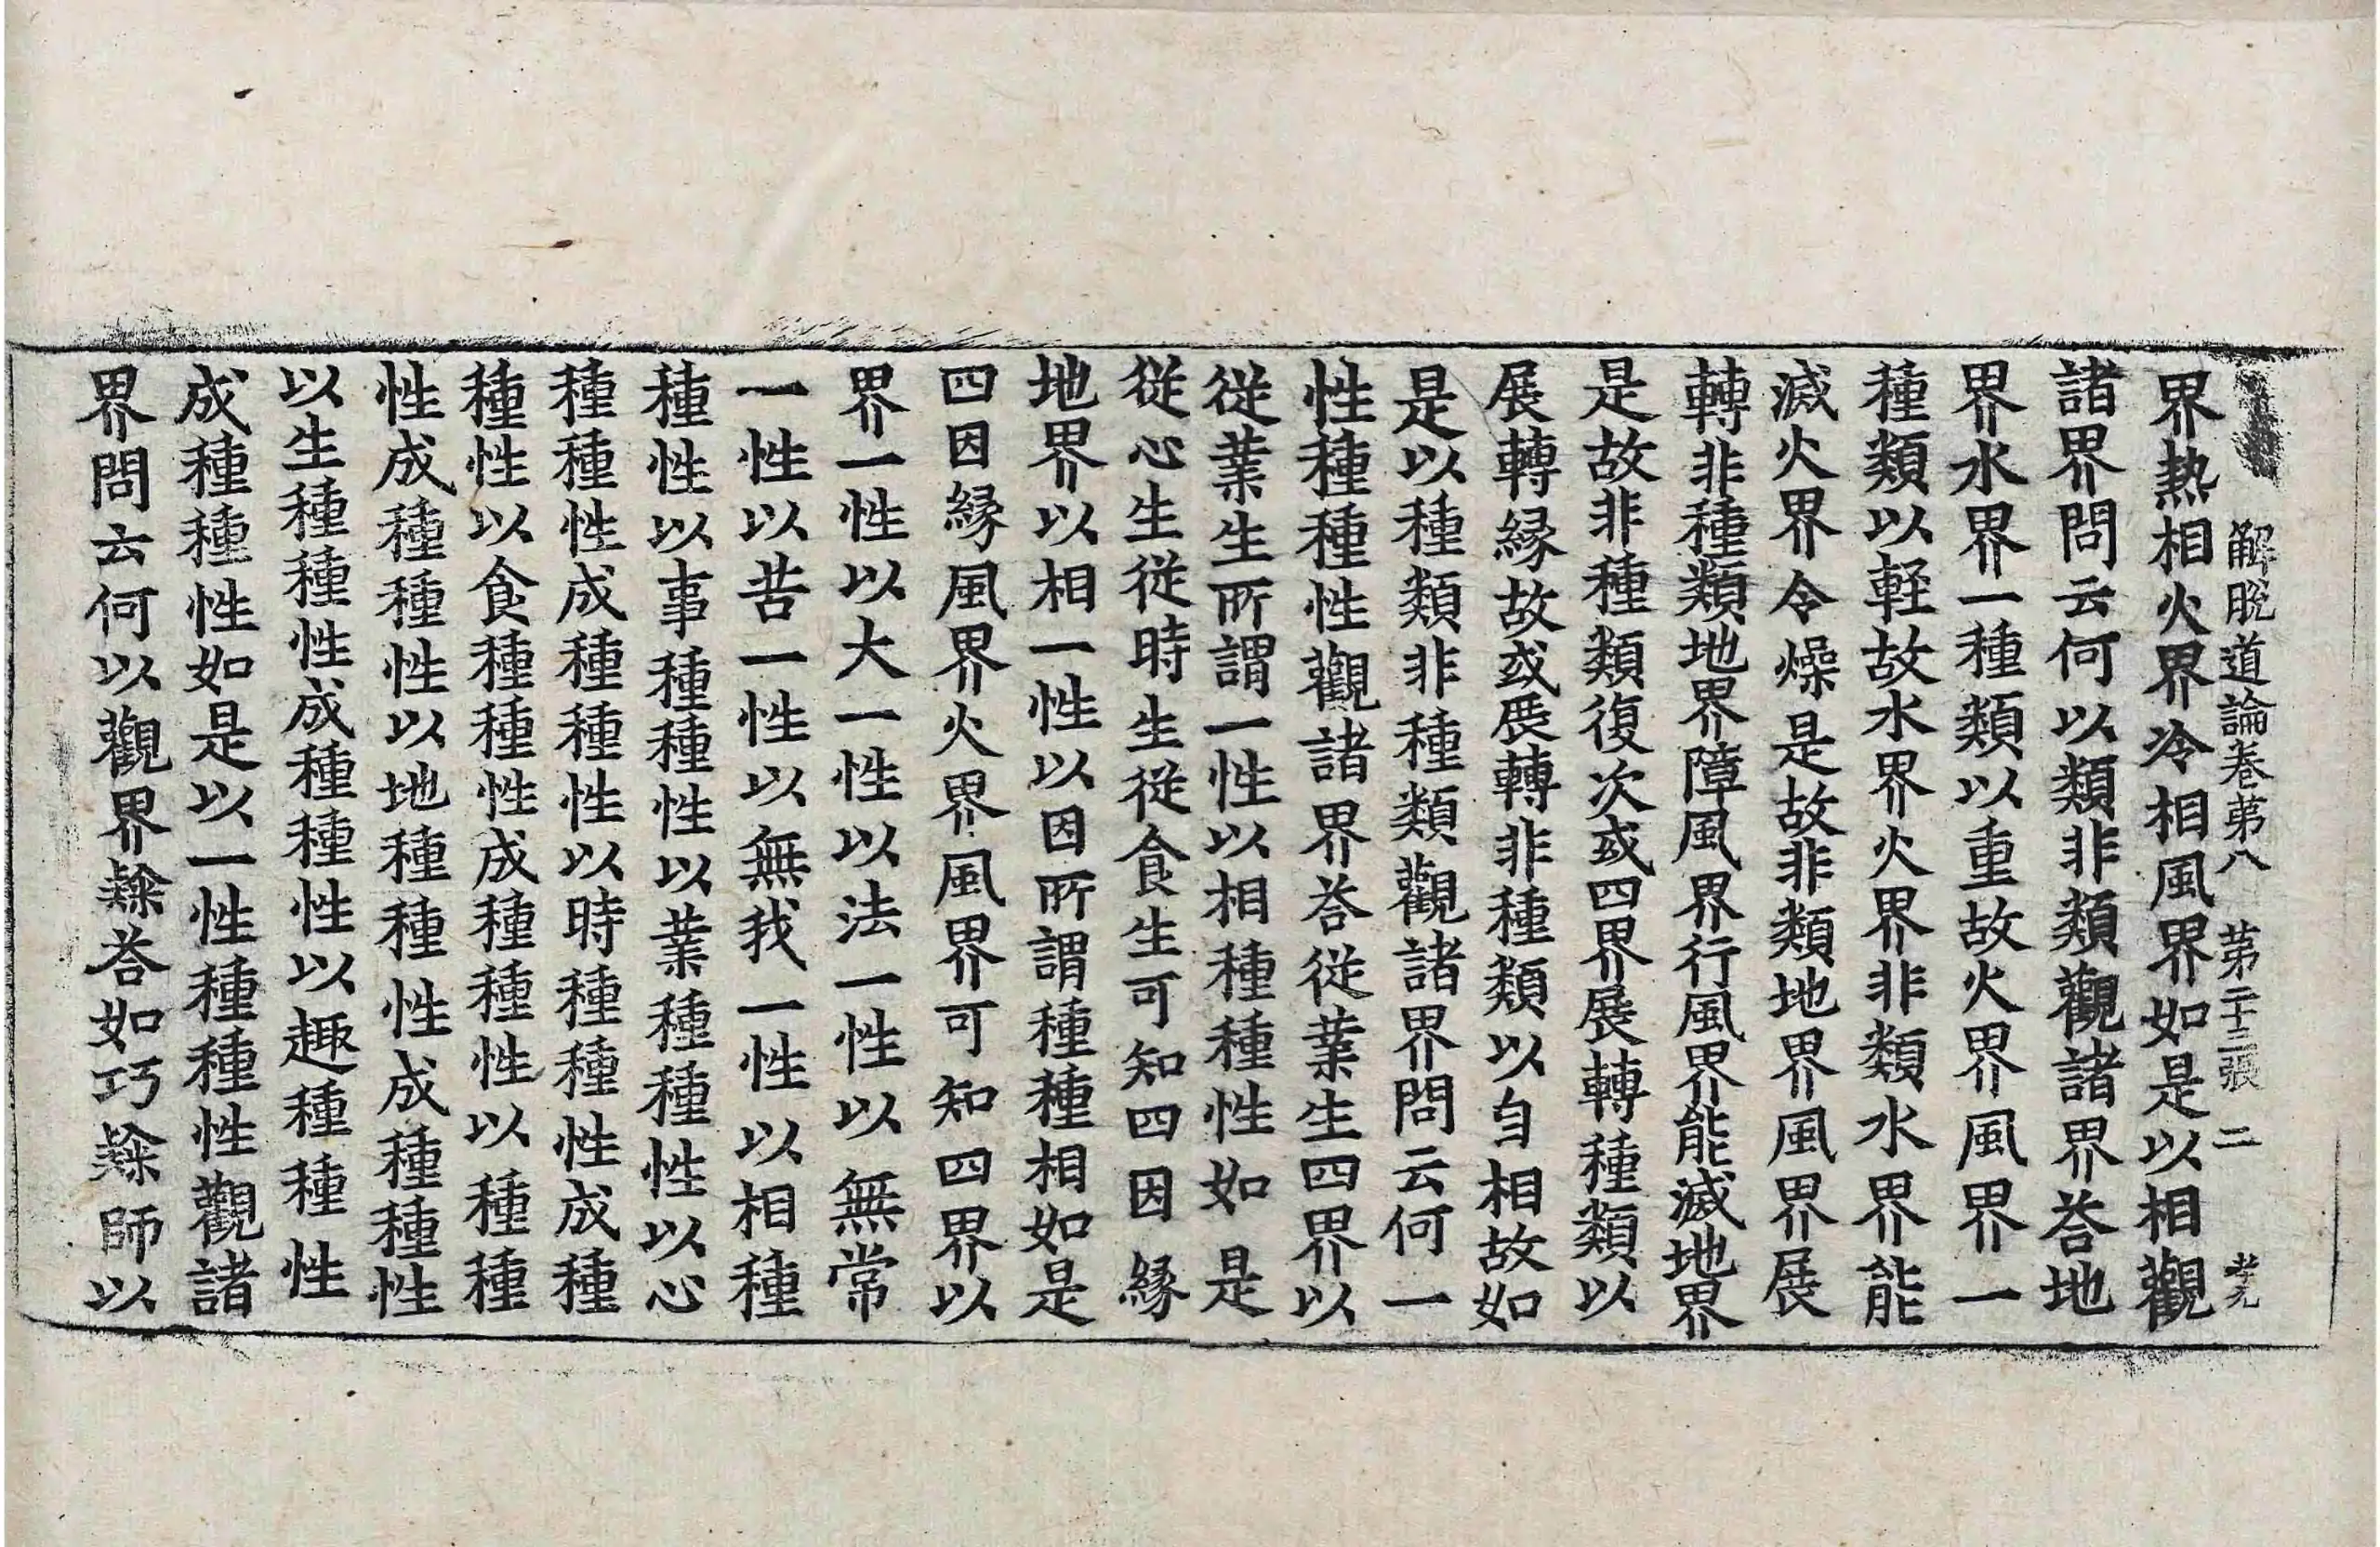 解脱道論卷苐八　苐二十三張　二
界熱相火界冷相風界如是以相觀
諸界問云何以類非類觀諸界荅地
界水界一種類以重故火界風界一
種類以輕故水界火界非類水界能
滅火界令燥是故非類地界風界展
轉非種類地界障風界行風界能滅地界
是故非種類復次或四界展轉種類以
展轉縁故或展轉非種類以自相故如
是以種類非種類觀諸界問云何一
性種種性觀諸界荅從業生四界以
從業生所謂一性以相種種性如是
從心生從時生從食生可知四因縁
地界以相一性以因所謂種種相如是
四因縁風界火界風界可知四界以
界一性以大一性以法一性以無常
一性以苦一性以無我一性以相種
種性以事種種性以業種種性以心
種種性成種種性以時種種性成種
種性以食種種性成種種性以種種
性成種種性以地種種性成種種性
以生種種性成種種性以趣種種性
成種種性如是以一性種種性觀諸
界問云何以觀界䉼荅如巧䉼師以